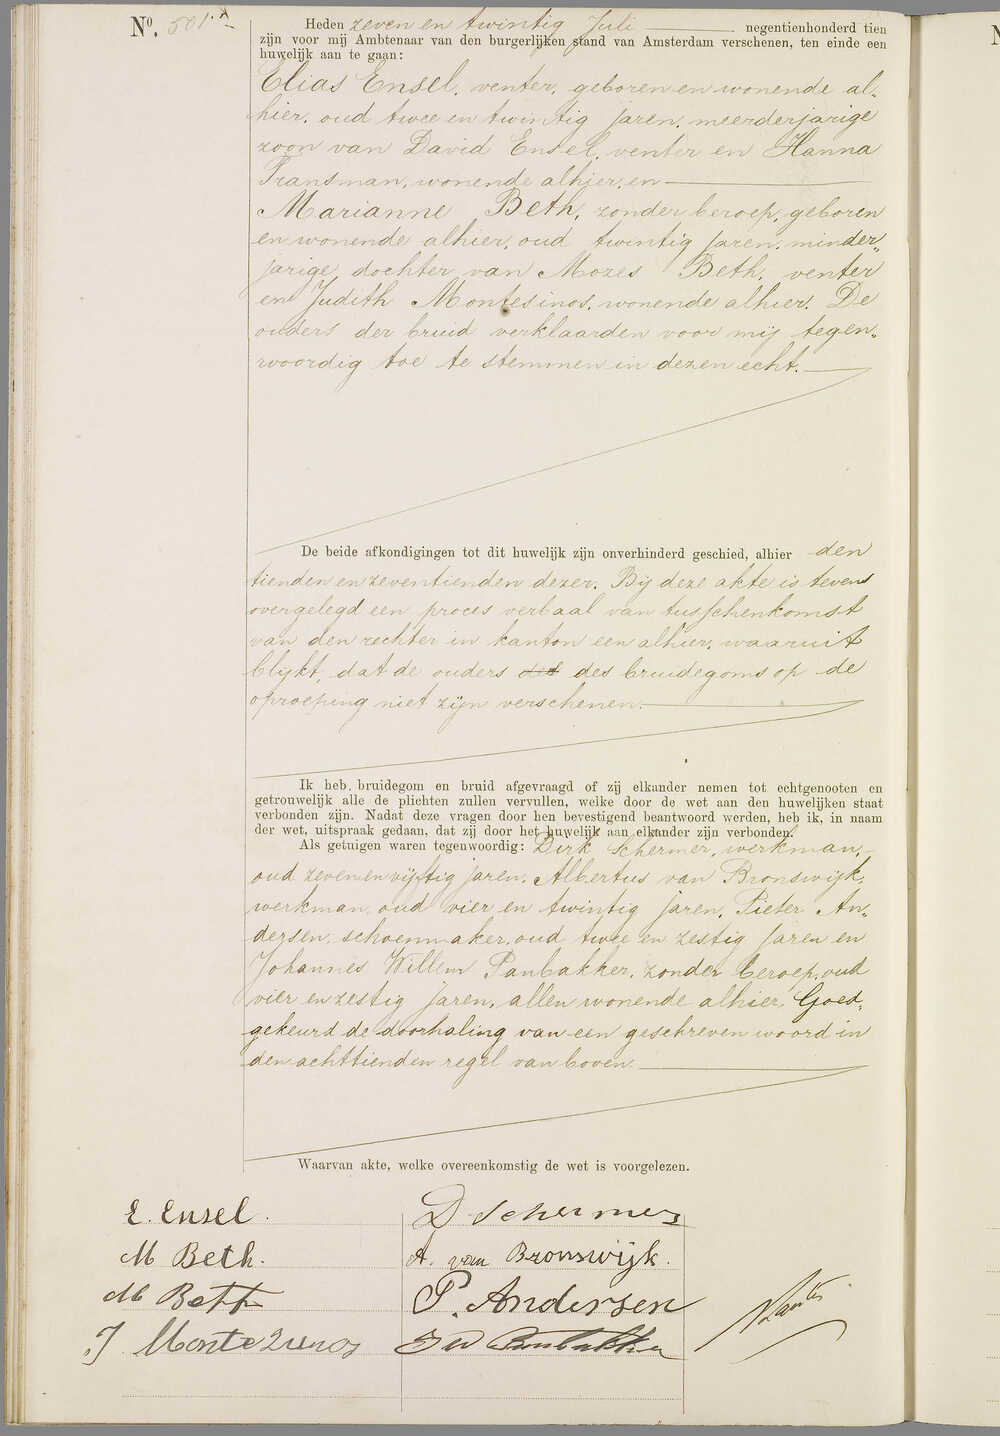 No. 501.A
Heden zeven en twintig Juli negentienhonderd tien
zijn voor mij Ambtenaar van den burgerlijken stand van Amsterdam verschenen, ten einde een
huwelijk aan te gaan:
Elias Ensel, venter, geboren en wonende al-
hier, oud twee en twintig jaren, meerderjarige
zoon van David Ensel, venter en Hanna
Fransman, wonende alhier, en
Marianne Beth, zonder beroep, geboren
en wonende alhier, oud twintig jaren, minder„
jarige dochter van Mozes Beth, venter
en Judith Montesinos, wonende alhier. De
ouders der bruid verklaarden voor mij tegen„
woordig toe te stemmen in dezen echt.
De beide afkondigingen tot dit huwelijk zijn onverhinderd geschied, alhier den
tienden en zeventienden dezer. Bij deze akte is tevens
overgelegd een proces verbaal van tusschenkomst
van den rechter in kanton een alhier, waaruit
blijkt, dat de ouders des bruidegoms op de
oproeping niet zijn verschenen.
Ik heb bruidegom en bruid afgevraagd of zij elkander nemen tot echtgenooten en
getrouwelijk alle de plichten zullen vervullen, welke door de wet aan den huwelijken staat
verbonden zijn. Nadat deze vragen door hen bevestigend beantwoord werden, heb ik, in naam
der wet, uitspraak gedaan, dat zij door het huwelijk aan elkander zijn verbonden.
Als getuigen waren tegenwoordig: Dirk Schermer, werkman,
oud zeven en vijftig jaren, Albertus van Bronswijk,
werkman, oud vier en twintig jaren, Pieter An„
dersen, schoenmaker, oud twee en zestig jaren en
Johannes Willem Panbakker, zonder beroep, oud
vier en zestig jaren, allen wonende alhier. Goed„
gekeurd de doorhaling van een geschreven woord in
den achttienden regel van boven
Waarvan akte, welke overeenkomstig de wet is voorgelezen.
E. Ensel.
D Schermer
M Beth.
A. van Bronswijk.
M Beth
P. Andersen
J Montezinos
J W Panbakker